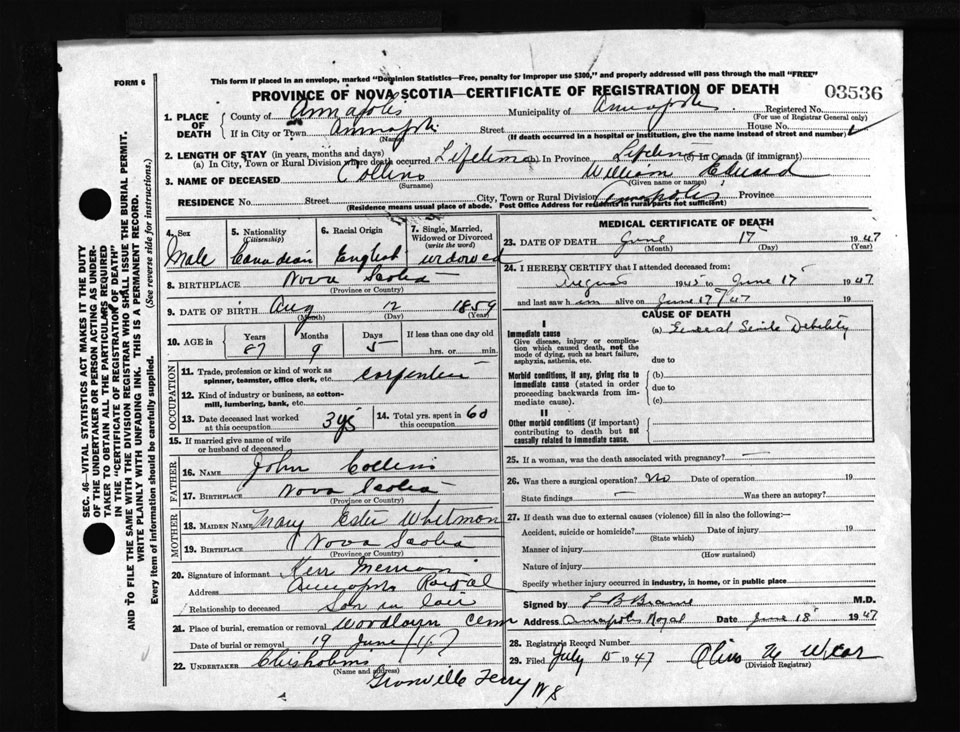 FORM 6
This form if placed in an envelope, marked "Dominion Statistics—Free, penalty for improper use $300," and properly addressed will pass through the mail "FREE"
PROVINCE OF NOVA SCOTIA—CERTIFICATE OF REGISTRATION OF DEATH
03536
1. PLACE OF DEATH
County of Annapolis Municipality of Annapolis Registered No.
(For use of Registrar General only)
If in City or Town Annapolis Street House No.
(Name) (If death occurred in a hospital or institution, give the name instead of street and number)
2. LENGTH OF STAY (in years, months and days)
(a) In City, Town or Rural Division where death occurred Lifetime (b) In Province Lifetime (c) In Canada (if immigrant)
3. NAME OF DECEASED Collins William Edward
(Surname) (Given name or names)
RESIDENCE No. Street City, Town or Rural Division Annapolis Province
(Residence means usual place of abode. Post Office Address for residents in rural parts not sufficient)
4. Sex Male
5. Nationality (Citizenship) Canadian
6. Racial Origin English
7. Single, Married, Widowed or Divorced (write the word) widowed
8. BIRTHPLACE Nova Scotia
(Province or Country)
9. DATE OF BIRTH Aug 12 1859
(Month) (Day) (Year)
10. AGE in Years Months Days If less than one day old
87 9 5 hrs. or min.
OCCUPATION
11. Trade, profession or kind of work as spinner, teamster, office clerk, etc. carpenter
12. Kind of industry or business, as cotton-mill, lumbering, bank, etc.
13. Date deceased last worked at this occupation 3 yrs
14. Total yrs. spent in this occupation 60
15. If married give name of wife or husband of deceased
FATHER
16. NAME John Collins
17. BIRTHPLACE Nova Scotia
(Province or Country)
MOTHER
18. MAIDEN NAME Mary Ester Whitman
19. BIRTHPLACE Nova Scotia
(Province or Country)
20. Signature of informant
Address Annapolis Royal
Relationship to deceased Son in law
21. Place of burial, cremation or removal Woodlawn Cem
Date of burial or removal 19 June /47
22. UNDERTAKER Chisholms
(Name and address)
Granville Ferry NS
MEDICAL CERTIFICATE OF DEATH
23. DATE OF DEATH June 17 1947
(Month) (Day) (Year)
24. I HEREBY CERTIFY that I attended deceased from:
1945 to June 17 1947
and last saw him alive on June 17/47 19
CAUSE OF DEATH
I
Immediate cause
Give disease, injury or complication which caused death, not the mode of dying, such as heart failure, asphyxia, asthenia, etc.
(a) General Senile Debility
due to
Morbid conditions, if any, giving rise to immediate cause (stated in order proceeding backwards from immediate cause).
(b)
due to
(c)
II
Other morbid conditions (if important) contributing to death but not causally related to immediate cause.
25. If a woman, was the death associated with pregnancy? —
26. Was there a surgical operation? No Date of operation 19
State findings — Was there an autopsy?
27. If death was due to external causes (violence) fill in also the following:—
Accident, suicide or homicide? Date of injury 19
(State which)
Manner of injury
(How sustained)
Nature of injury
Specify whether injury occurred in industry, in home, or in public place
Signed by M.D.
Address Annapolis Royal Date June 18 1947
28. Registrars Record Number
29. Filed July 15 1947
(Division Registrar)
SEC. 46—VITAL STATISTICS ACT MAKES IT THE DUTY
OF THE UNDERTAKER OR PERSON ACTING AS UNDERTAKER TO OBTAIN ALL THE PARTICULARS REQUIRED
IN THE "CERTIFICATE OF REGISTRATION OF DEATH"
AND TO FILE THE SAME WITH THE DIVISION REGISTRAR WHO SHALL ISSUE THE BURIAL PERMIT.
WRITE PLAINLY WITH UNFADING INK. THIS IS A PERMANENT RECORD.
Every item of information should be carefully supplied. (See reverse side for instructions.)